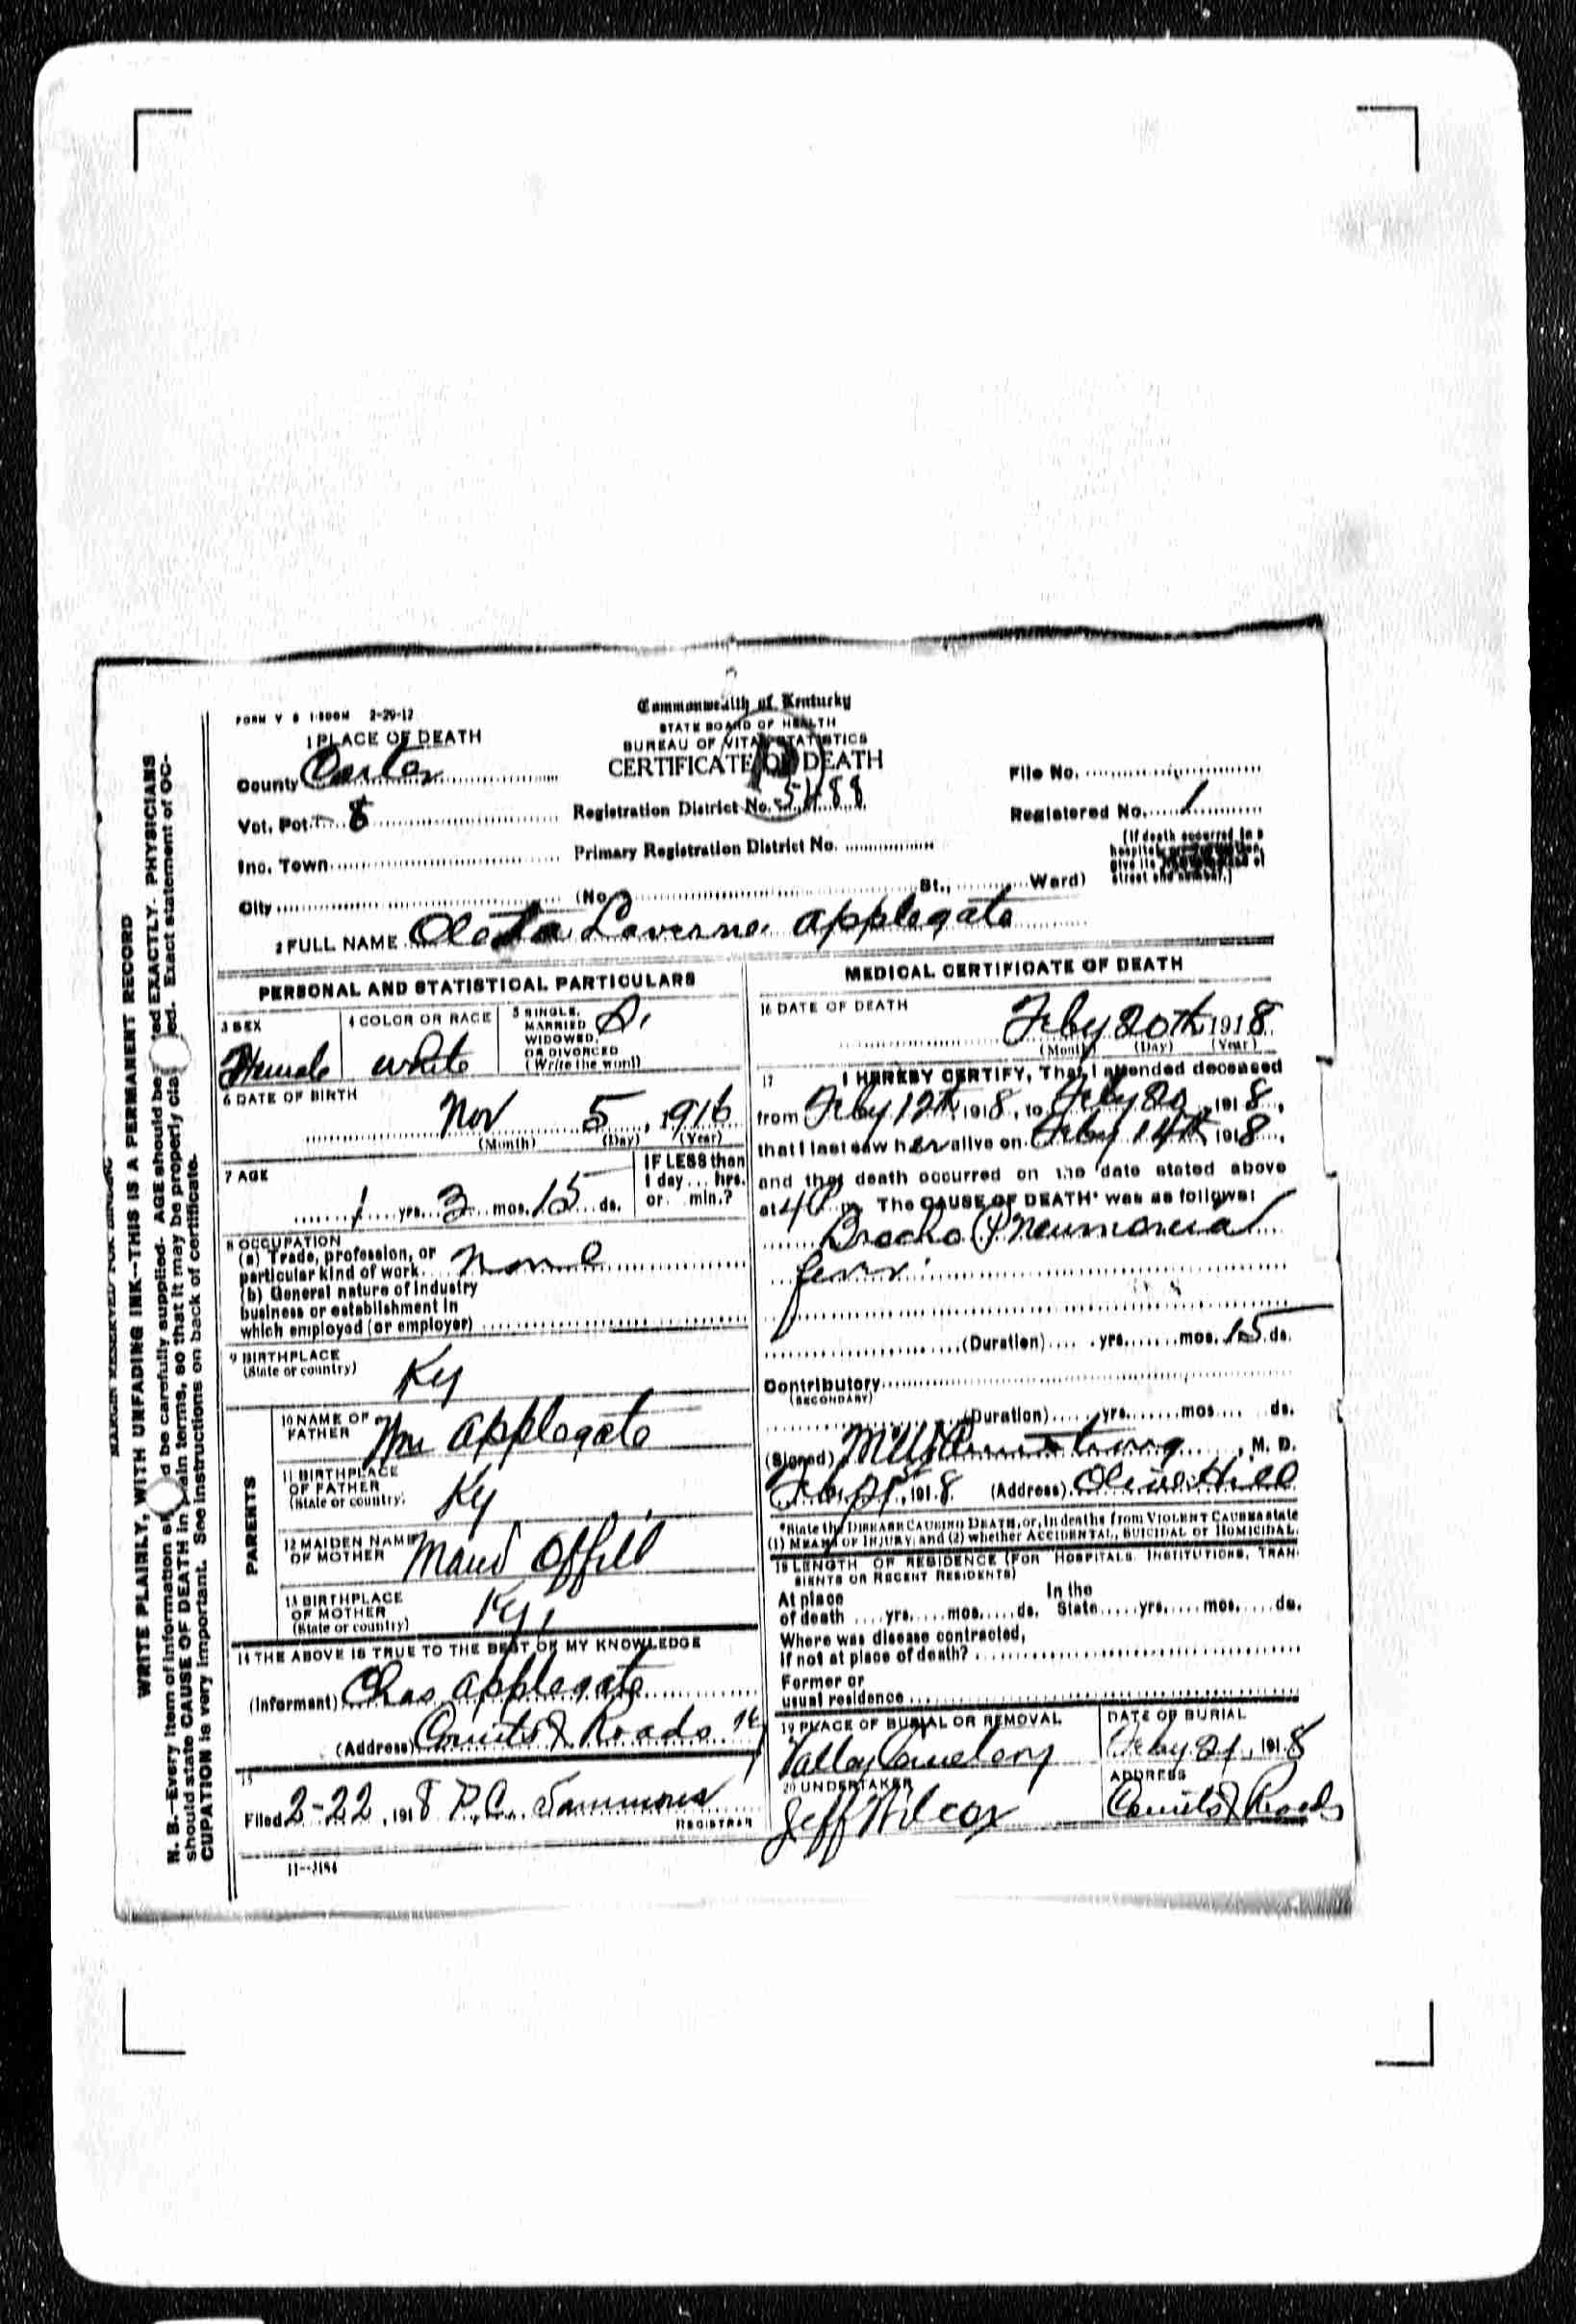 WRITE PLAINLY, WITH UNFADING INK--THIS IS A PERMANENT RECORD
N. B.--Every item of information d be carefully supplied. AGE should be ed EXACTLY. PHYSICIANS
should state CAUSE OF DEATH in plain terms, so that it may be properly cla ed. Exact statement of OC-
CUPATION is very important. See instructions on back of certificate.
FORM V S 1-500M 2-29-17
Commonwealth of Kentucky
STATE BOARD OF HEALTH
BUREAU OF VITAL STATISTICS
CERTIFICATE OF DEATH
1 PLACE OF DEATH
County Carter
File No.
Vot. Pct. 8
Registration District No. 5488
Registered No. 1
Inc. Town
Primary Registration District No.
(If death occurred in a
hospital
give its
street and number.)
City (No. St., Ward)
2 FULL NAME Laverne Applegate
PERSONAL AND STATISTICAL PARTICULARS
3 SEX
Female
4 COLOR OR RACE
white
5 SINGLE,
MARRIED S.
WIDOWED,
OR DIVORCED
(Write the word)
6 DATE OF BIRTH
Nov 5, 1916
(Month) (Day) (Year)
7 AGE
1 yrs. 3 mos. 15 ds.
IF LESS than
1 day... hrs.
or min.?
8 OCCUPATION
(a) Trade, profession, or
particular kind of work none
(b) General nature of industry
business or establishment in
which employed (or employer)
9 BIRTHPLACE
(State or country) Ky
PARENTS
10 NAME OF
FATHER Wm Applegate
11 BIRTHPLACE
OF FATHER
(State or country) Ky
12 MAIDEN NAME
OF MOTHER Maud Offill
13 BIRTHPLACE
OF MOTHER
(State or country) Ky,
14 THE ABOVE IS TRUE TO THE BEST OF MY KNOWLEDGE
(Informant) Chas Applegate
(Address) Roads
15
Filed 2-22, 1918 R.C. Sammons
REGISTRAR
11--3184
MEDICAL CERTIFICATE OF DEATH
16 DATE OF DEATH
Feby 20th 1918
(Month) (Day) (Year)
17 I HEREBY CERTIFY, That I attended deceased
from Feby 12th, 1918, to Feby 20, 1918,
that I last saw her alive on Feby 14th, 1918,
and that death occurred on the date stated above
at 4 P m. The CAUSE OF DEATH* was as follows:
Broncho Pneumonia
(Duration) yrs. mos. 15 ds.
Contributory
(SECONDARY)
(Duration) yrs. mos. ds.
(Signed) Armstrong, M. D.
1918 (Address) Olive Hill
*State the DISEASE CAUSING DEATH, or, in deaths from VIOLENT CAUSES state
(1) MEANS OF INJURY; and (2) whether ACCIDENTAL, SUICIDAL or HOMICIDAL.
18 LENGTH OF RESIDENCE (FOR HOSPITALS, INSTITUTIONS, TRAN-
SIENTS OR RECENT RESIDENTS)
At place
of death yrs. mos. ds.
In the
State yrs. mos. ds.
Where was disease contracted,
if not at place of death?
Former or
usual residence
19 PLACE OF BURIAL OR REMOVAL
Valley Cemetery
DATE OF BURIAL
Feby 21, 1918
20 UNDERTAKER
Jeff Wilcox
ADDRESS
Roads